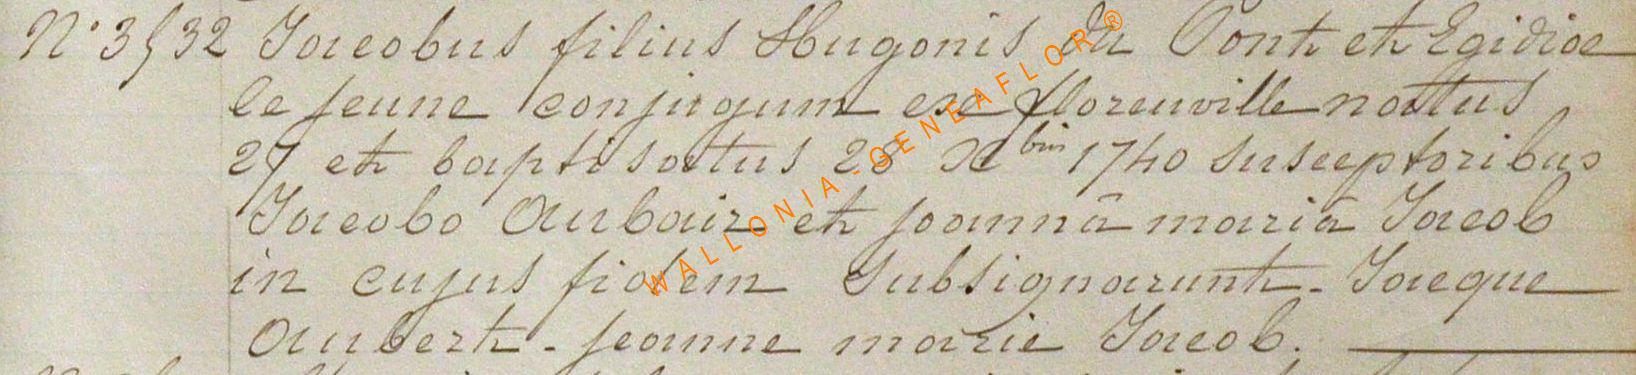 N° 3532 Jacobus filius Hugonis du Pont et Egidiae
le jeune conjugum ex florenville natus
27 et baptisatus 28 Xbris 1740 susceptoribus
Jacobo Aubair et joannâ mariâ Jacob
in cujus fidem Subsignarunt - Jacque
Aubert - jeanne marie Jacob.
WALLONIA-GENEAFLOR®